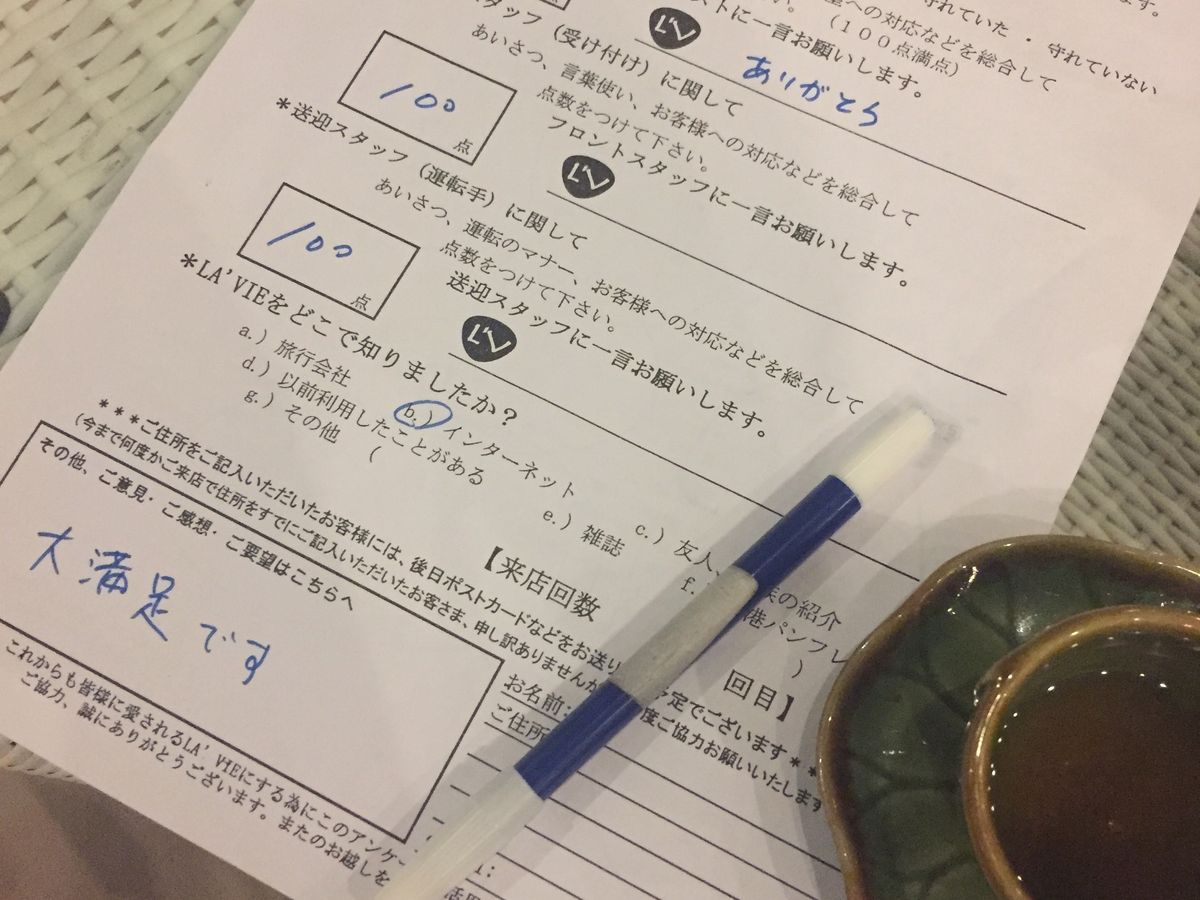 守れていた ・ 守れていない
への対応などを総合して
(100点満点)
ストに一言お願いします。
ありがとう
スタッフ (受け付け) に関して
あいさつ、言葉使い、お客様への対応などを総合して
点数をつけて下さい。
100
点
フロントスタッフに一言お願いします。
*送迎スタッフ (運転手) に関して
あいさつ、運転のマナー、お客様への対応などを総合して
点数をつけて下さい。
100
点
送迎スタッフに一言お願いします。
*LA'VIEをどこで知りましたか?
a.) 旅行会社 b.) インターネット c.) 友人
d.) 以前利用したことがある e.) 雑誌 f.
の紹介
港パンフレ
g.) その他 ( )
【来店回数 回目】
***ご住所をご記入いただいたお客様には、後日ポストカードなどをお送り 予定でございます**
(今まで何度かご来店で住所をすでにご記入いただいたお客さま、申し訳ありませんが 度ご協力お願いいたします
その他、ご意見・ご感想・ご要望はこちらへ
大満足です
お名前:
ご住所
これからも皆様に愛されるLA'VIEにする為にこのアンケー
ご協力、誠にありがとうございます。またのお越しを